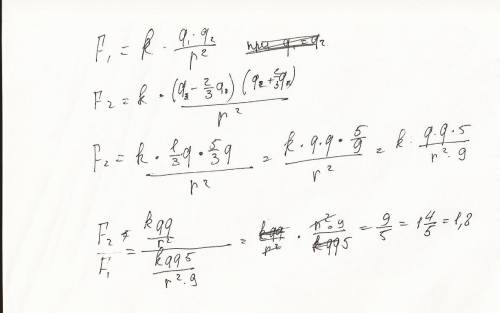 F₁ = k · q₁·q₂ / r² при q₁ = q₂
F₂ = k · (q₂ - 2/3 q₂)(q₂ + 2/3 q₂) / r²
F₂ = k · 1/3 q · 5/3 q / r² = k·q·q·5/9 / r² = k · q·q·5 / r²·9
F₂ / F₁ = kqq/r² / kqq5/r²·9 = kqq/r² · r²·9/kqq5 = 9/5 = 1 4/5 = 1,8